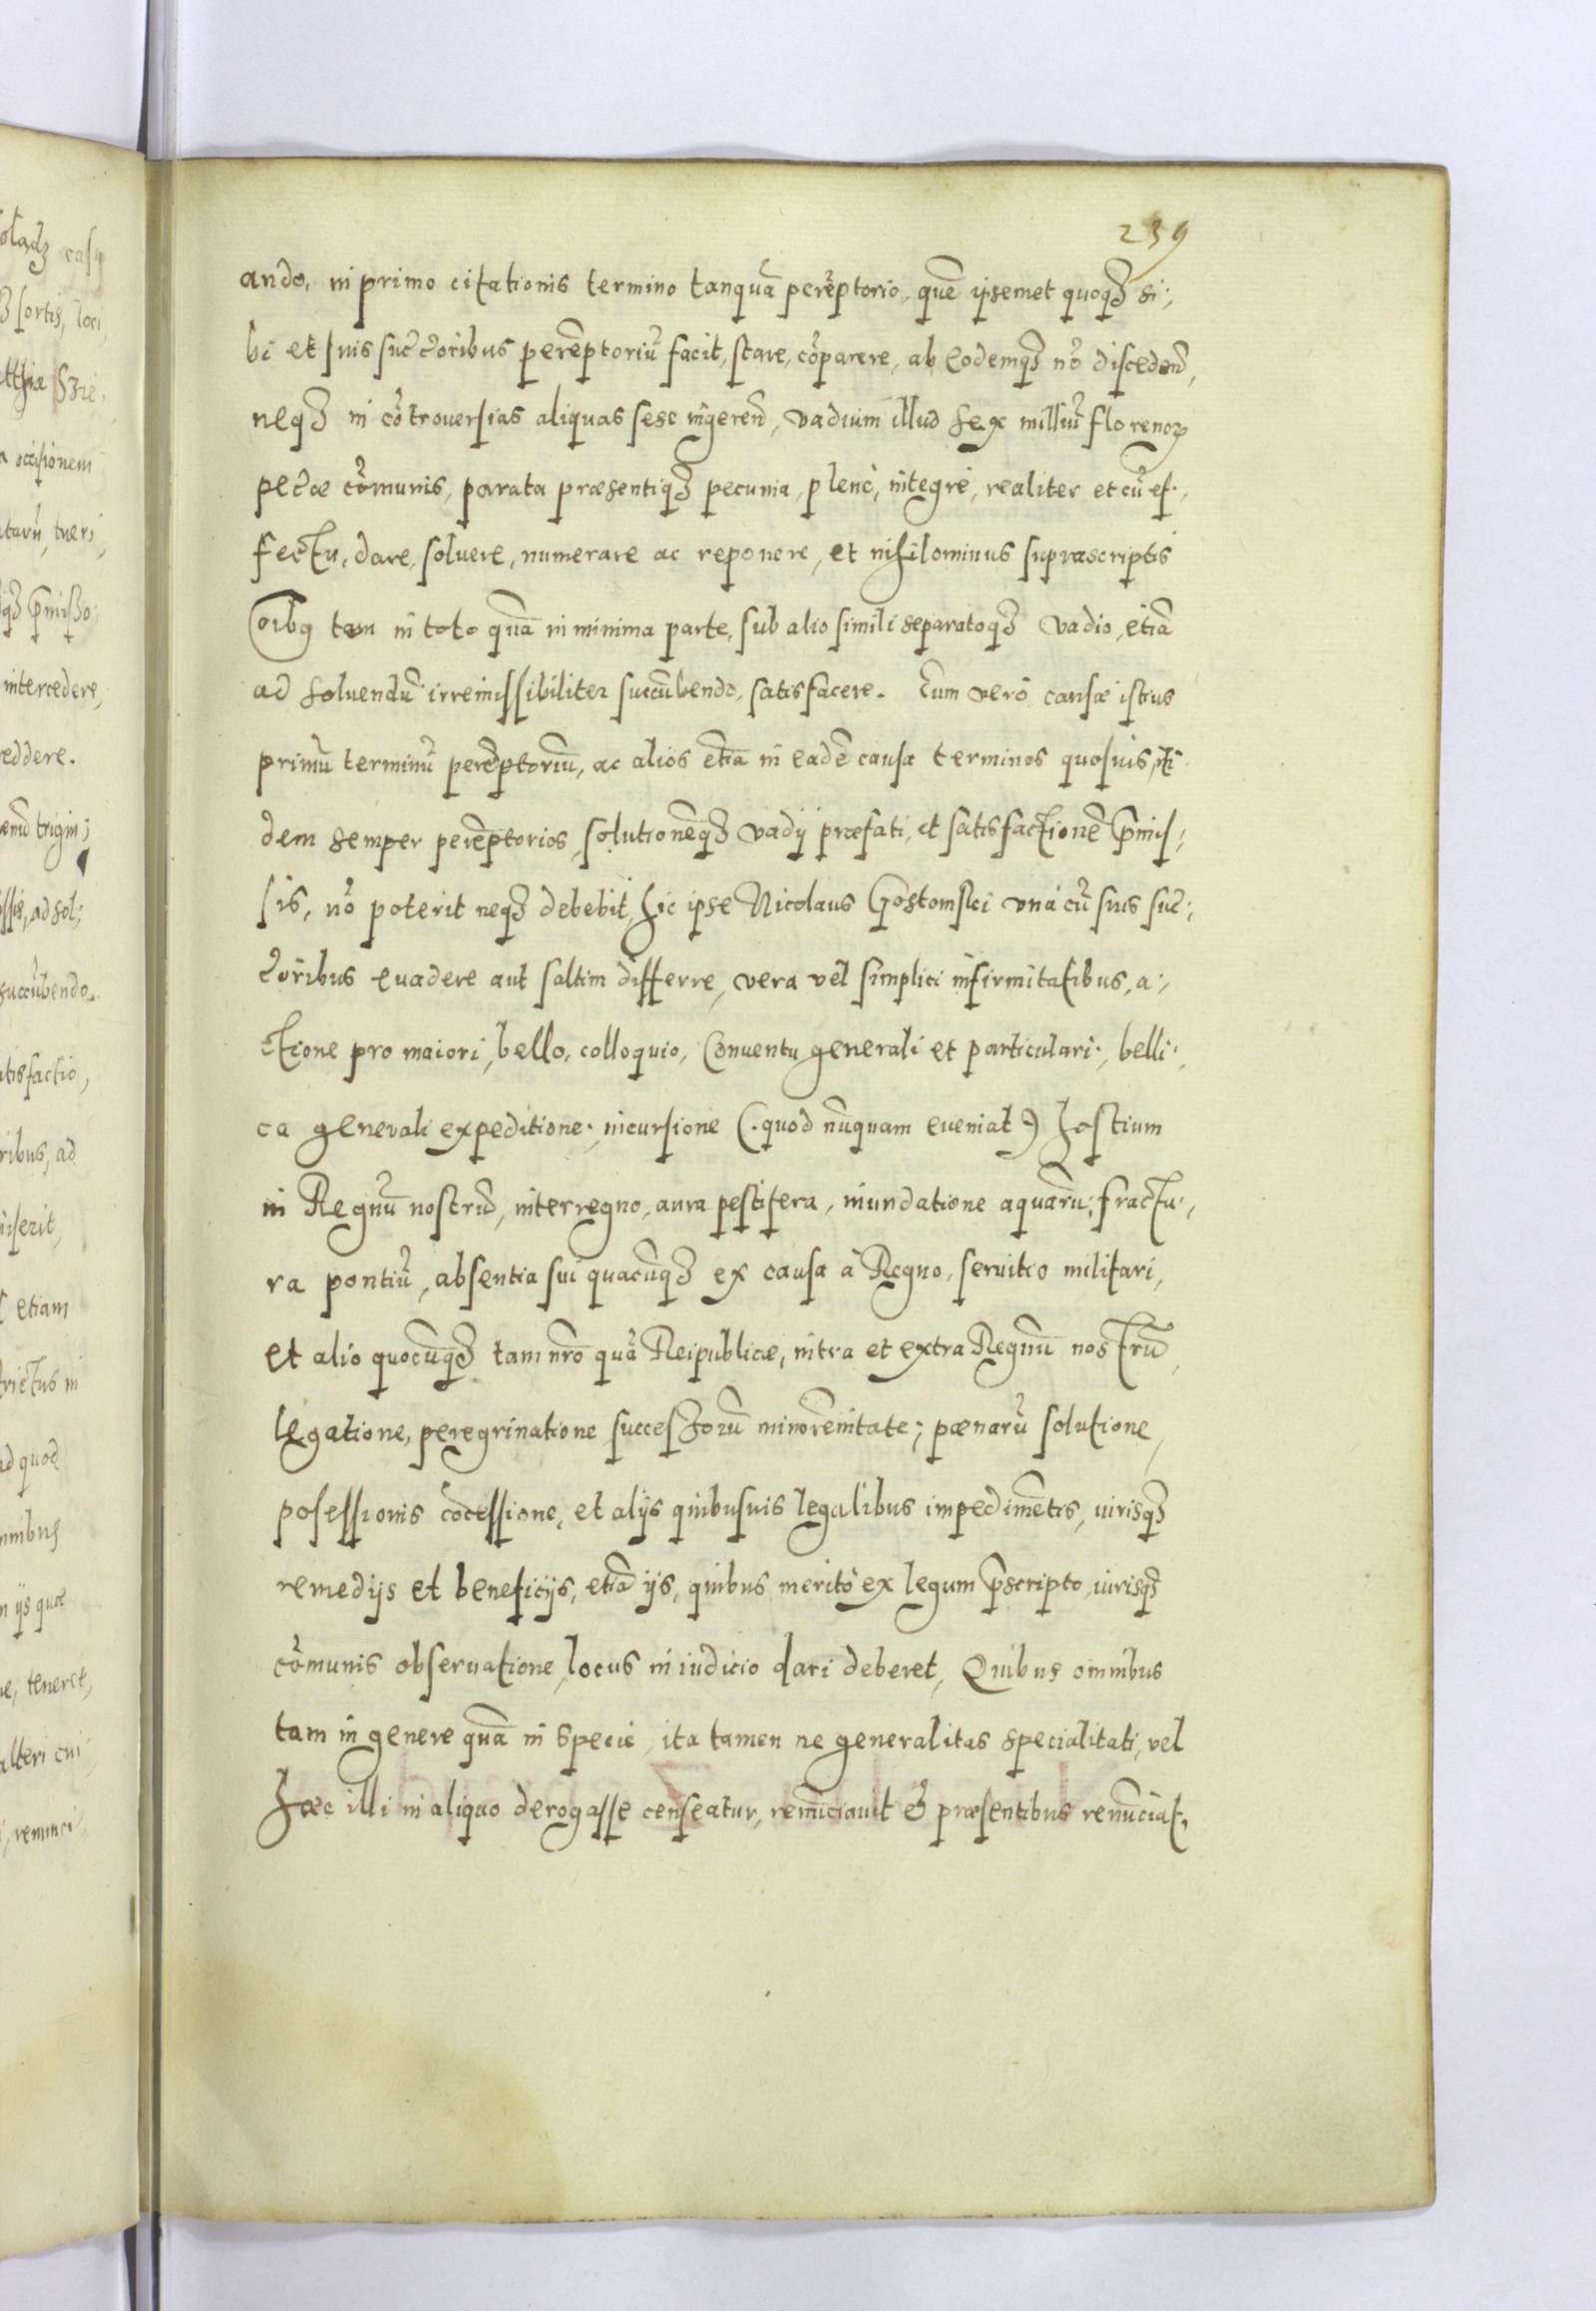 239
ando, in primo citationis termino tanquã perẽptorio, quẽ ipsemet quoqȝ si-
bi et suis succ̃oribus perẽptoriũ facit, stare, cõparere, ab eodemqȝ nõ disceden̄,
neqȝ in cõtrouersias aliquas sese ingeren̄, vadium illud sex milliũ florenoꝝ
pec̃æ cõmunis, parata præsentiqȝ pecunia, plenè, integrè, realiter et cũ ef-
fectu, dare, soluere, numerare ac reponere, et nihilominus suprascriptis
õibꝰ tam in toto quã in minima parte, sub alio simili separatoqȝ vadio, etiã
ad soluendũ irremissibiliter succũbendo, satisfacere. Cum verò causæ istius
primũ terminũ perẽptoriũ, ac alios etiã in eadẽ causa terminos quosuis, iti-
dem semper perẽptorios, solutionẽqȝ vadij præfati, et satisfactionẽ p̃mis-
sis, nõ poterit neqȝ debebit, hic ipse Nicolaus Gostomski vnà cũ suis suc̃-
c̃oribus euadere aut saltim differre, vera vel simplici infirmitatibus, a-
ctione pro maiori, bello, colloquio, Conuentu generali et particulari, belli-
ca generali expeditione, incursione (quod nũquam eueniat) hostium
in Regnũ nostrũ, interregno, aura pestifera, inundatione aquarũ, fractu-
ra pontiũ, absentia sui quacũqȝ ex causa à Regno, seruitio militari,
et alio quocũqȝ tam nr̃o quã Reipublicæ, intra et extra Regnũ nostrũ,
legatione, peregrinatione successorũ minorẽnitate, pænarũ solutione,
posessionis cõcessione, et alijs quibusuis legalibus impedimẽtis, iurisqȝ
remedijs et beneficijs, etiã ijs, quibus meritò ex legum p̃scripto iurisqȝ
cõmunis obseruatione, locus in iudicio dari deberet, Quibus omnibus
tam in genere quã in specie, ita tamen ne generalitas specialitati, vel
hæc illi in aliquo derogasse censeatur, renũciauit & præsentibus renũciat,